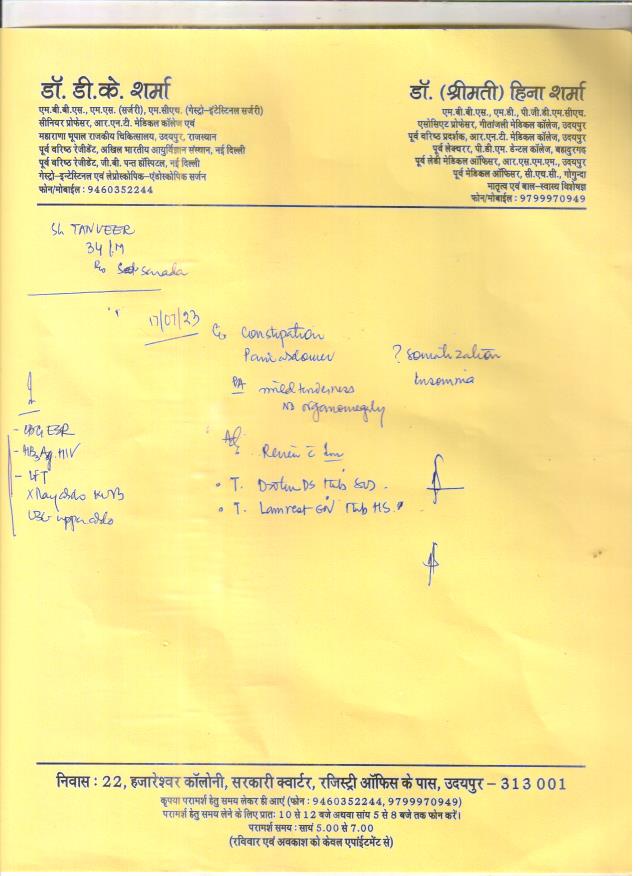 डॉ. डी.के. शर्मा
एम.बी.बी.एस., एम.एस. (सर्जरी), एम.सीएच. (गेस्ट्रो-इंटेस्टिनल सर्जरी)
सीनियर प्रोफेसर, आर.एन.टी. मेडिकल कॉलेज एवं
महाराणा भूपाल राजकीय चिकित्सालय, उदयपुर, राजस्थान
पूर्व वरिष्ठ रेजीडेंट, अखिल भारतीय आयुर्विज्ञान संस्थान, नई दिल्ली
पूर्व वरिष्ठ रेजीडेंट, जी.बी. पन्त हॉस्पिटल, नई दिल्ली
गेस्ट्रो-इन्टेस्टिनल एवं लेप्रोस्कोपिक-एंडोस्कोपिक सर्जन
फोन/मोबाईल : 9460352244
डॉ. (श्रीमती) हिना शर्मा
एम.बी.बी.एस., एम.डी., पी.जी.डी.एम.सीएच.
एसोसिएट प्रोफेसर, गीतांजली मेडिकल कॉलेज, उदयपुर
पूर्व वरिष्ठ प्रदर्शक, आर.एन.टी. मेडिकल कॉलेज, उदयपुर
पूर्व लेक्चरर, पी.डी.एम. डेन्टल कॉलेज, बहादुरगढ़
पूर्व लेडी मेडिकल ऑफिसर, आर.एस.एम.एम., उदयपुर
पूर्व मेडिकल ऑफिसर, सी.एच.सी., गोगुन्दा
मातृत्व एवं बाल-स्वास्थ्य विशेषज्ञ
फोन/मोबाईल : 9799970949
Sh TANVEER
34/M
R/o Sarada
17/07/23
C/o Constipation
Pain abdomen
? Somatization
Insomnia
PA mild tenderness
No organomegaly
Adv
Review c̄
- CBC ESR
- HBsAg HIV
- LFT
X Ray abdo KUB
USG upper abdo
• T. DS Tab
• T. Tab HS
निवास : 22, हजारेश्वर कॉलोनी, सरकारी क्वार्टर, रजिस्ट्री ऑफिस के पास, उदयपुर – 313 001
कृपया परामर्श हेतु समय लेकर ही आएं (फोन : 9460352244, 9799970949)
परामर्श हेतु समय लेने के लिए प्रातः 10 से 12 बजे अथवा सांय 5 से 8 बजे तक फोन करें।
परामर्श समय : सायं 5.00 से 7.00
(रविवार एवं अवकाश को केवल एपांईटमेंट से)